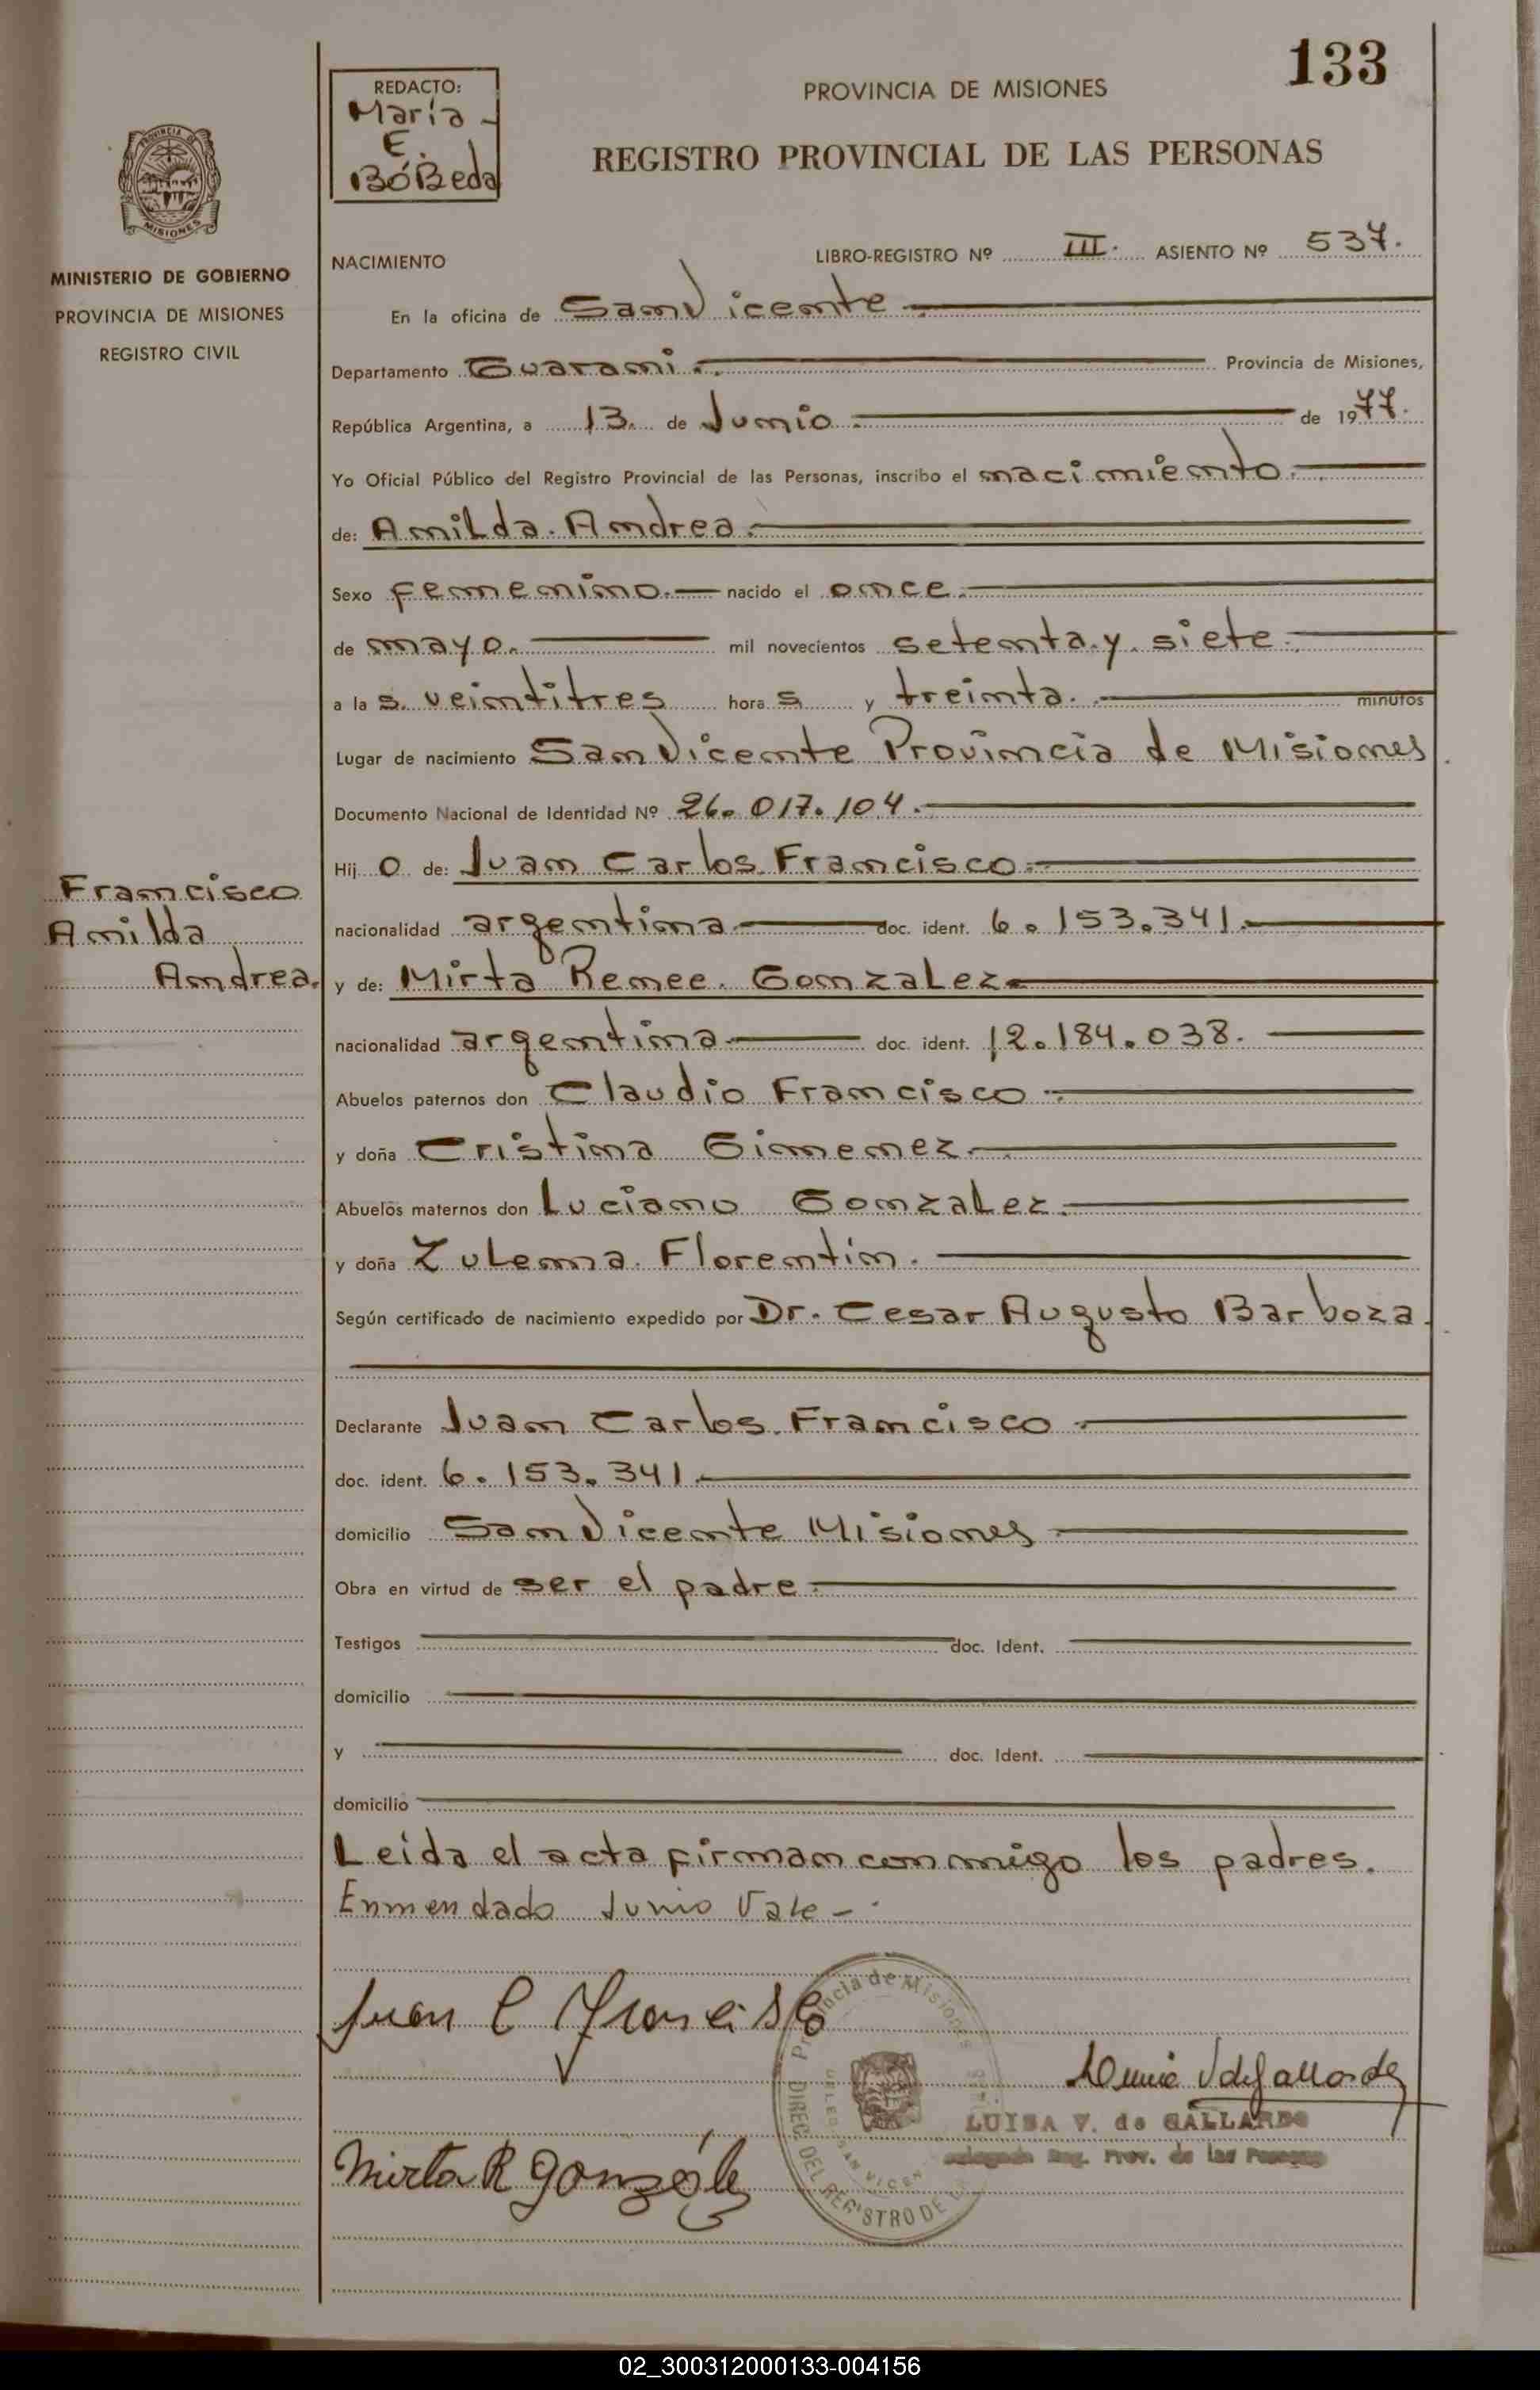 133
REDACTO:
María
E.
BóBeda
PROVINCIA DE MISIONES
REGISTRO PROVINCIAL DE LAS PERSONAS
PROVINCIA DE
MISIONES
MINISTERIO DE GOBIERNO
PROVINCIA DE MISIONES
REGISTRO CIVIL
NACIMIENTO
LIBRO-REGISTRO Nº III. ASIENTO Nº 537.
En la oficina de San Vicente
Departamento Guarani. Provincia de Misiones,
República Argentina, a 13. de Junio de 1977.
Yo Oficial Público del Registro Provincial de las Personas, inscribo el nacimiento.
de: Anilda. Andrea.
Sexo femenino. nacido el once.
de mayo. mil novecientos setenta y siete.
a la s. veintitres hora s y treinta. minutos
Lugar de nacimiento San Vicente Provincia de Misiones.
Documento Nacional de Identidad Nº 26.017.104.
Hij o de: Juan Carlos Francisco.
Francisco
Anilda
Andrea.
nacionalidad argentina doc. ident. 6.153.341.
y de: Mirta Renee. Gonzalez
nacionalidad argentina doc. ident. 12.184.038.
Abuelos paternos don Claudio Francisco
y doña Cristina Gimenez.
Abuelos maternos don Luciano Gonzalez.
y doña Zulema. Florentin.
Según certificado de nacimiento expedido por Dr. Cesar Augusto Barboza.
Declarante Juan Carlos. Francisco
doc. ident. 6.153.341.
domicilio San Vicente Misiones
Obra en virtud de ser el padre.
Testigos doc. Ident.
domicilio
y doc. Ident.
domicilio
Leida el acta firman conmigo los padres.
Enmendado Junio Vale -
Juan C Francisco
Provincia de Misiones
DIREC. DEL REGISTRO DE
SAN VICEN
LUISA V. de GALLARDO
Reg. Prov. de las Personas
Mirta R González
02_300312000133-004156